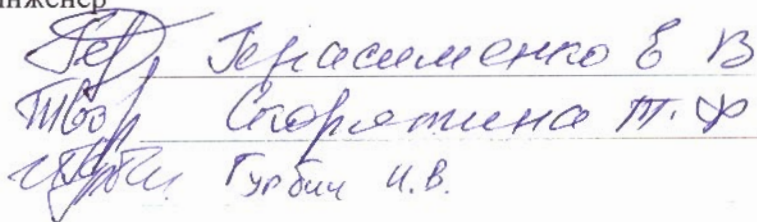 инженер
Герасименко Е В
Скорятина Т. Ф
Гурбич И.В.